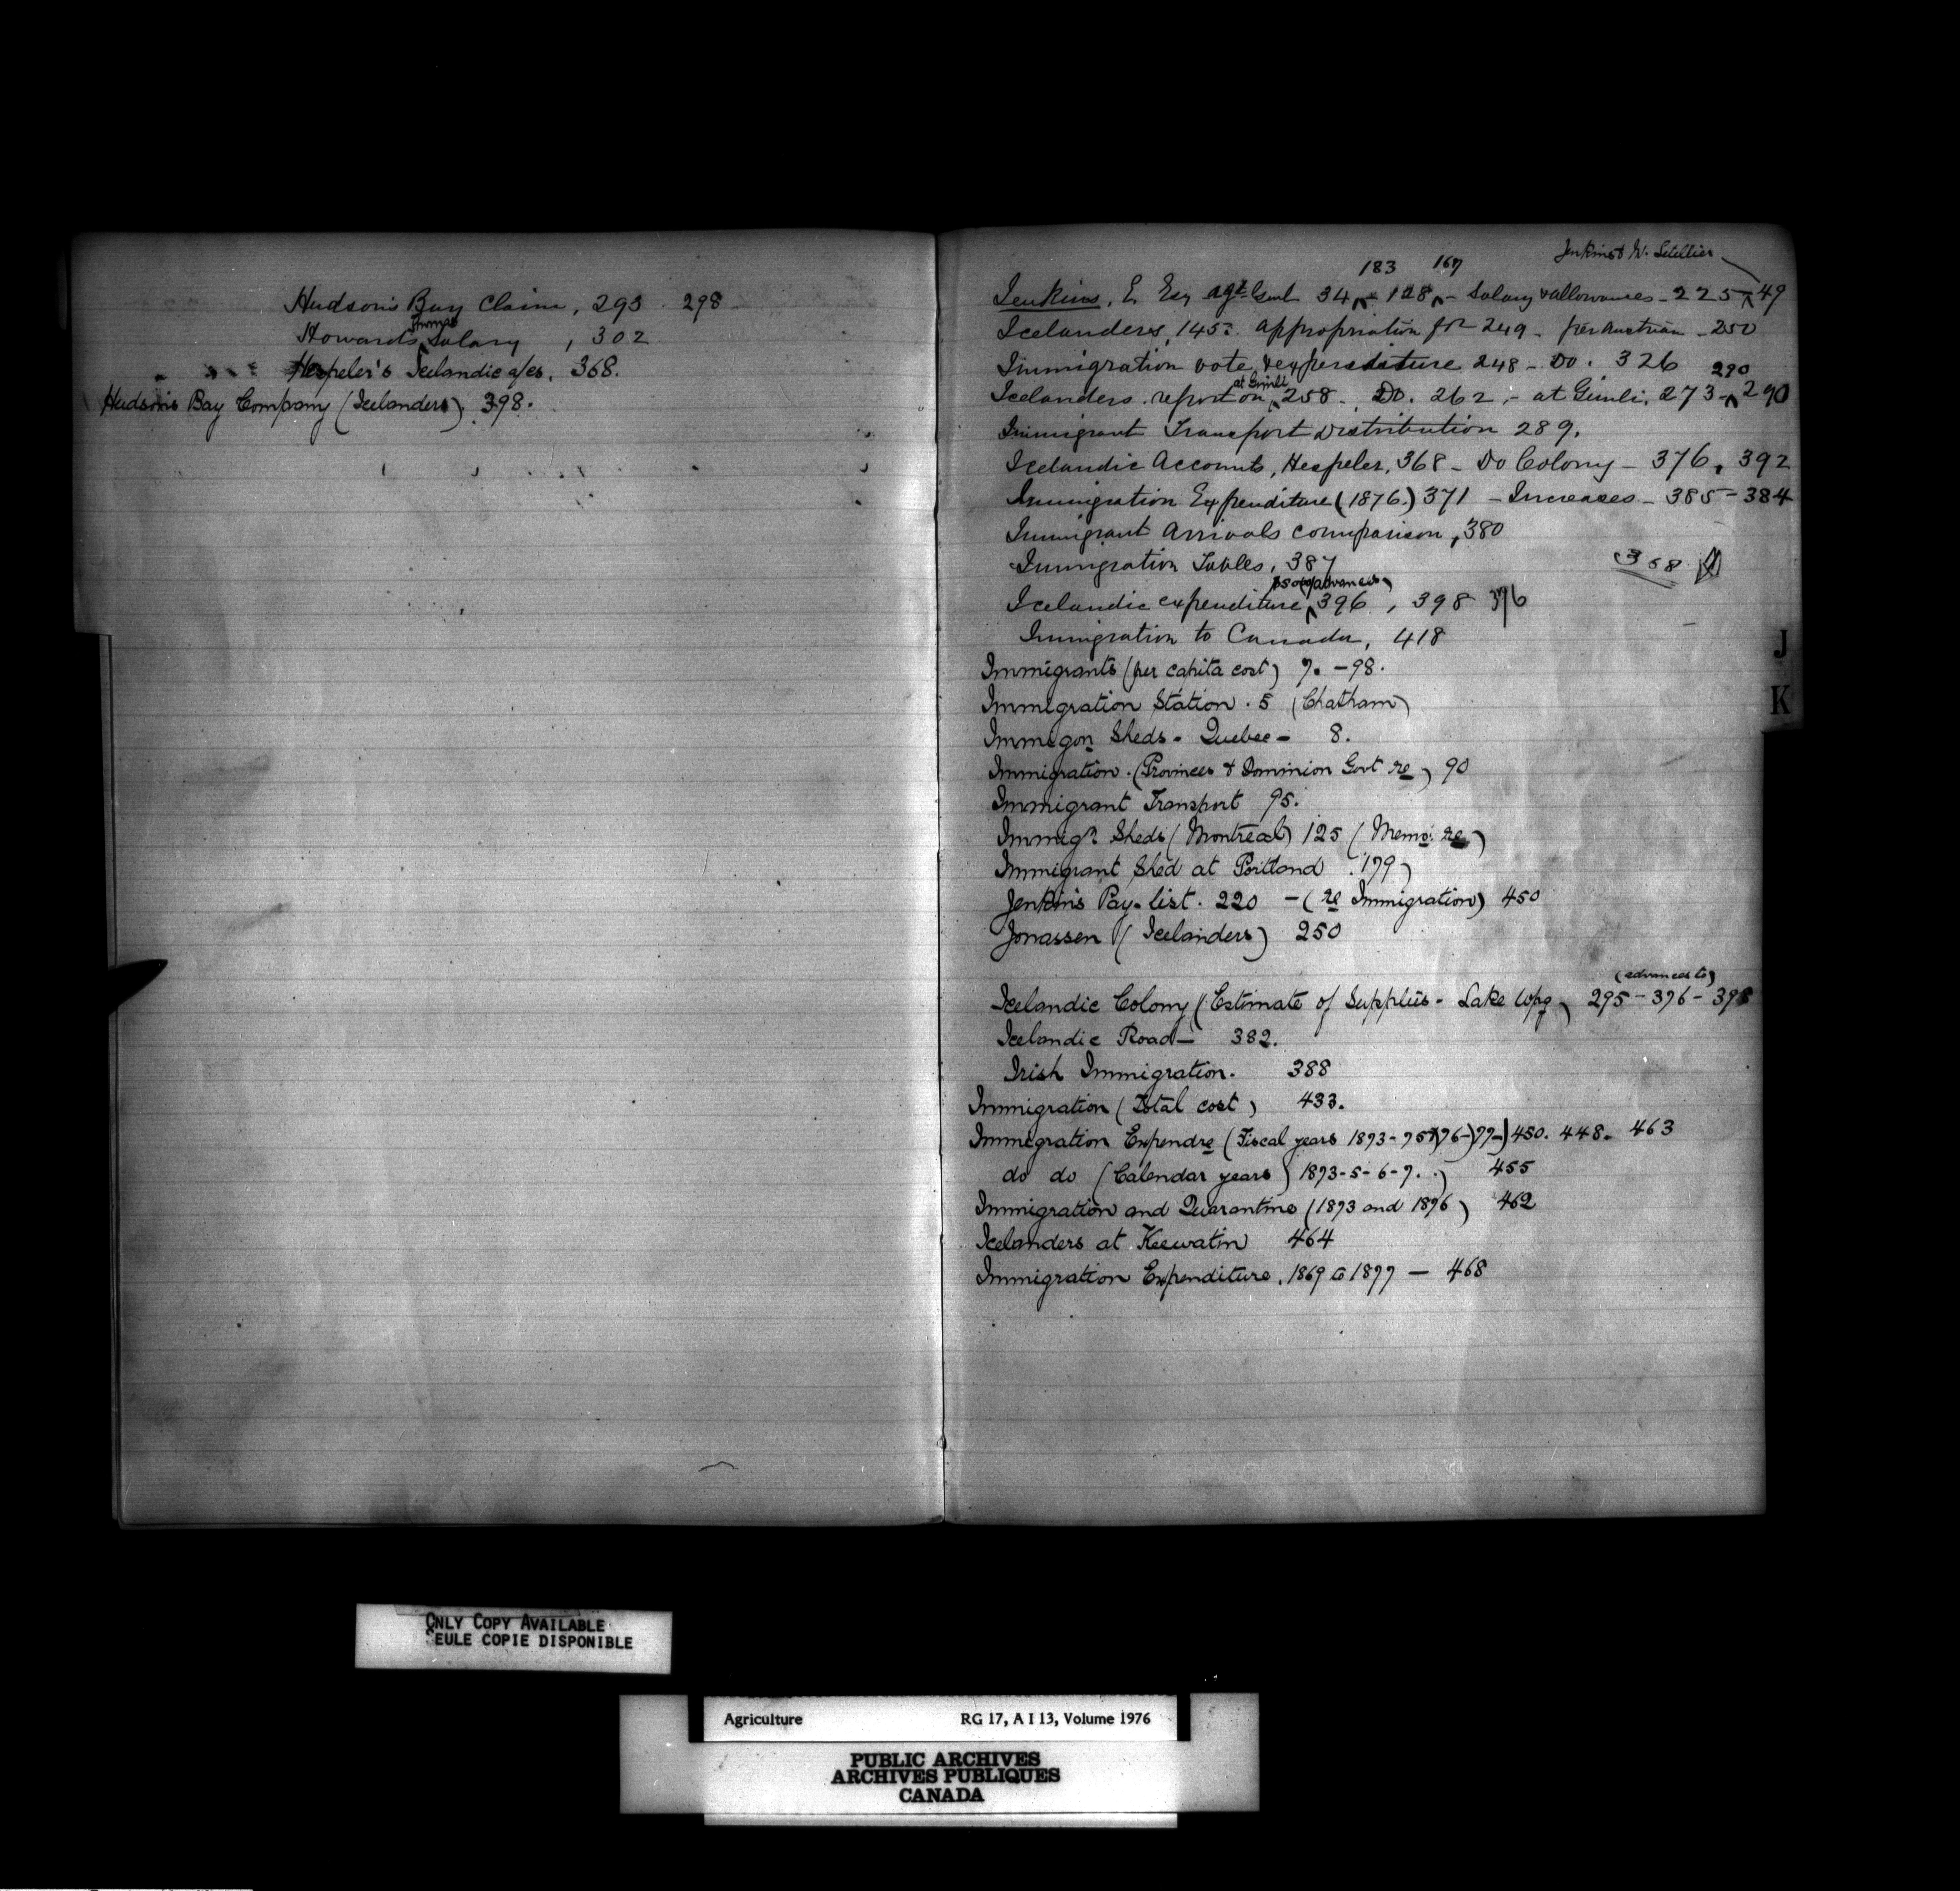 Hudson's Bay Claim, 293. 298
Thomas
Howard's Salary, 302
Hespeler's Icelandic a/cs. 368.
Hudson's Bay Company (Icelanders). 398.
Jenkins & W. Letellier
183 167
Jenkins, E. Esq Agt. Genl 34 - 128 - Salary & allowances - 225 - 49
Icelanders, 145: appropriation for 249 - per Austrian - 250
Immigration vote & expenditure 248 - Do. 326
290
at Gimli
Icelanders report on 258 - Do. 262 - at Gimli, 273 - 290
Immigrant Transport Distribution 289.
Icelandic Accounts, Hespeler, 368 - Do Colony - 376, 392
Immigration Expenditure (1876) 371 - Increases - 385 - 384
Immigrant Arrivals comparison, 380
Immigration Tables, 387
368
advances
Icelandic expenditure, 396, 398 376
Immigration to Canada, 418
Immigrants (per capita cost) 7. - 98.
Immigration Station. 5 (Chatham)
Immigon Sheds - Quebec - 8.
Immigration. (Provinces & Dominion Govt re) 90
Immigrant Transport 95.
Immign Sheds (Montreal) 125 (Memo: re)
Immigrant Shed at Portland. 179)
Jenkins Pay-list. 220 - (re Immigration) 450
Jonassen (Icelanders) 250
(advances to)
Icelandic Colony (Estimate of Supplies - Lake Wpg) 295 - 376 - 398
Icelandic Road - 382.
Irish Immigration. 388
Immigration (Total cost) 433.
Immigration Expendre (Fiscal years 1873-75-76-77-) 450. 448. 463
do do (Calendar years) 1873-5-6-7. ) 455
Immigration and Quarantine (1873 and 1876) 462
Icelanders at Keewatin 464
Immigration Expenditure. 1869 to 1877 - 468
J
K
ONLY COPY AVAILABLE
SEULE COPIE DISPONIBLE
Agriculture RG 17, A I 13, Volume 1976
PUBLIC ARCHIVES
ARCHIVES PUBLIQUES
CANADA